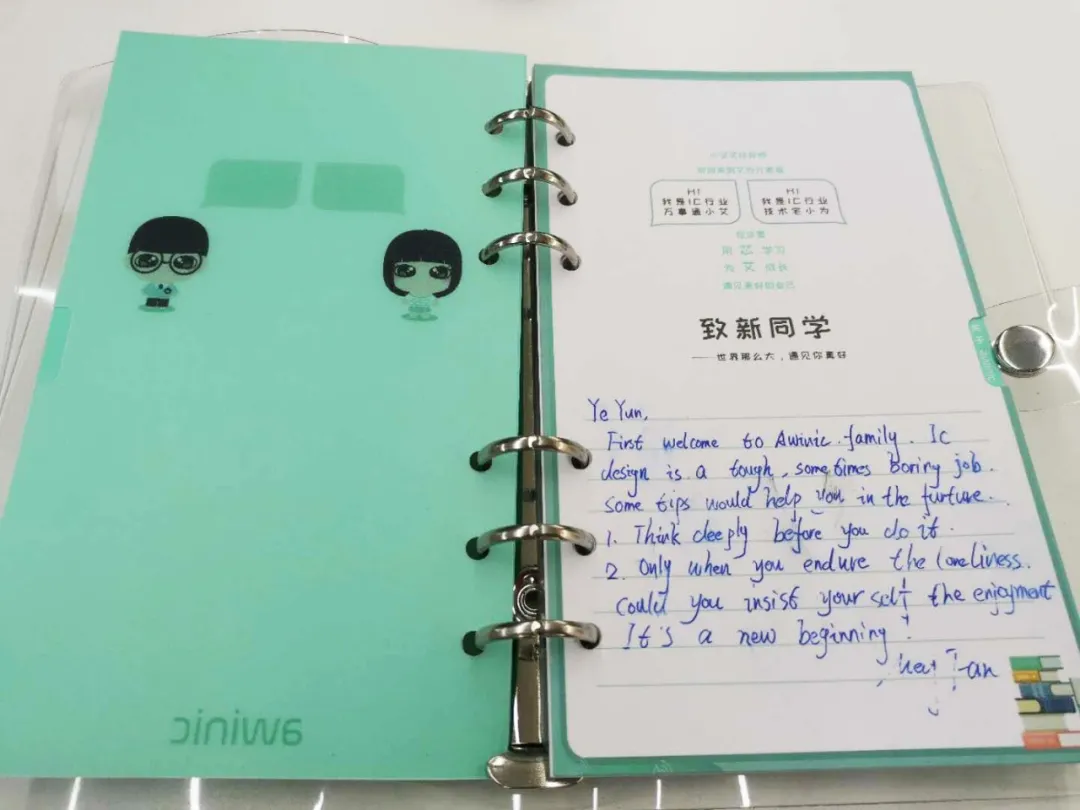 awinic
HI
我是IC行业
万事通小艾
HI
我是IC行业
技术宅小为
用 芯 学习
为 艾 成长
遇见美好的自己
致新同学
——世界那么大，遇见你真好
Ye Yun,
First welcome to Awinic family. Ic
design is a tough, sometimes boring job.
some tips would help you in the furture.
1. Think deeply before you do it.
2. Only when you endure the loneliness.
could you insist your self the enjoyment
It's a new beginning!